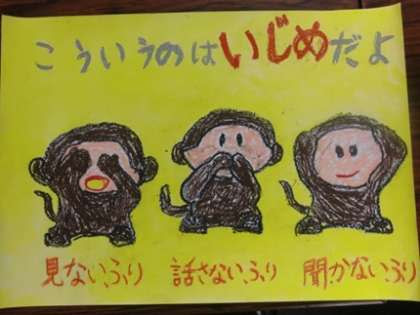 こういうのはいじめだよ
見ないふり 話さないふり 聞かないふり